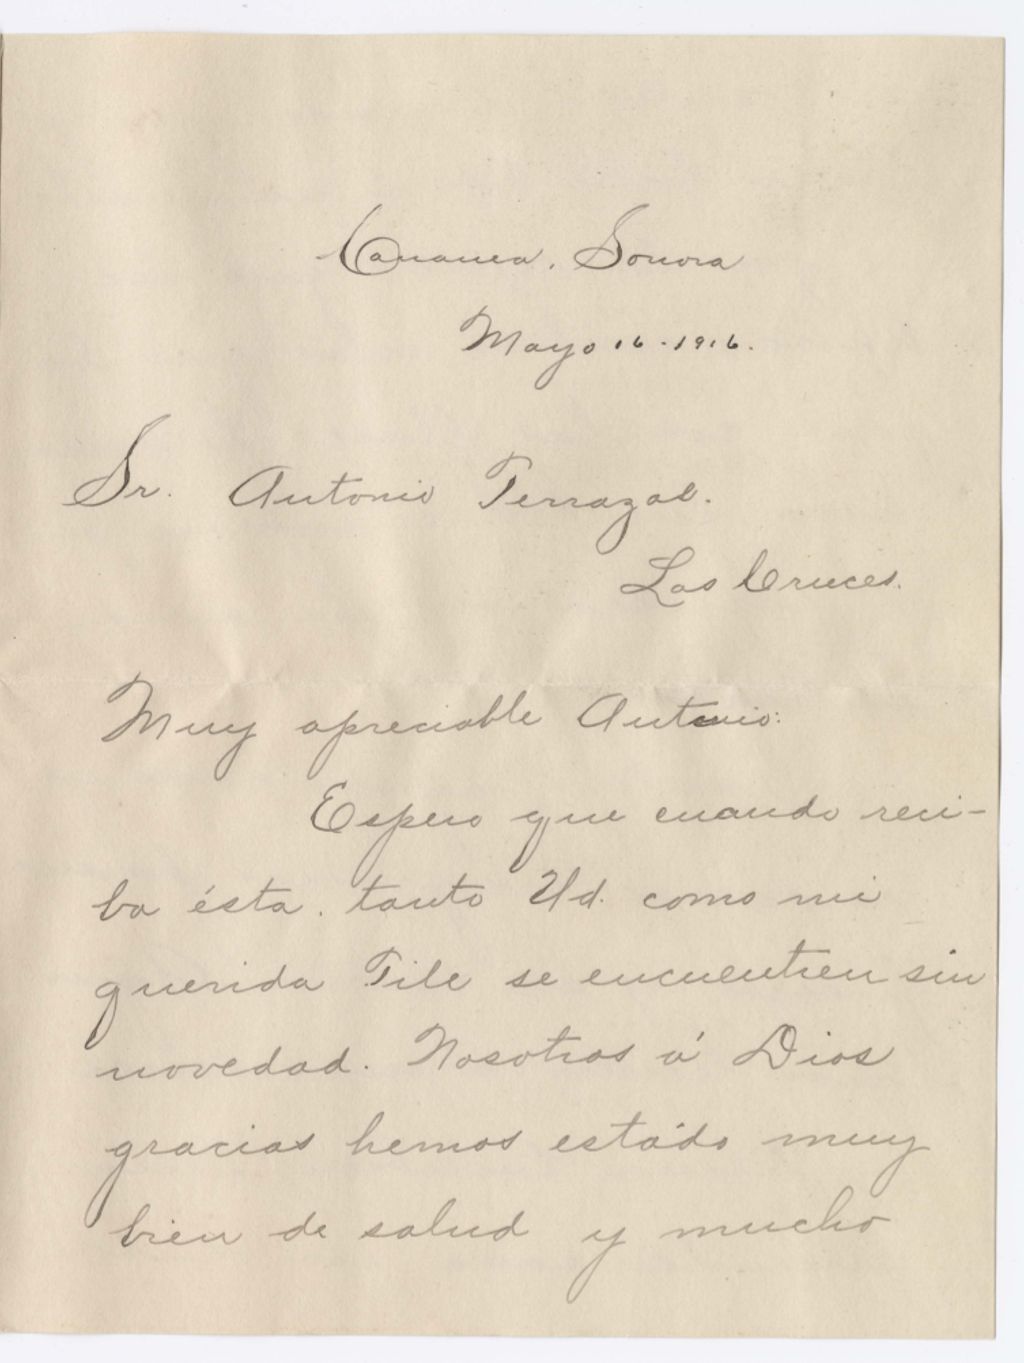 Cananea, Sonora
Mayo 16-1916.
Sr. Antonio Terrazas.
Las Cruces.
Muy apreciable Antonio:
Espero que cuando reci-
ba ésta. tanto Ud. como mi
querida Tile se encuentren sin
novedad. Nosotros á Dios
gracias hemos estado muy
bien de salud y mucho